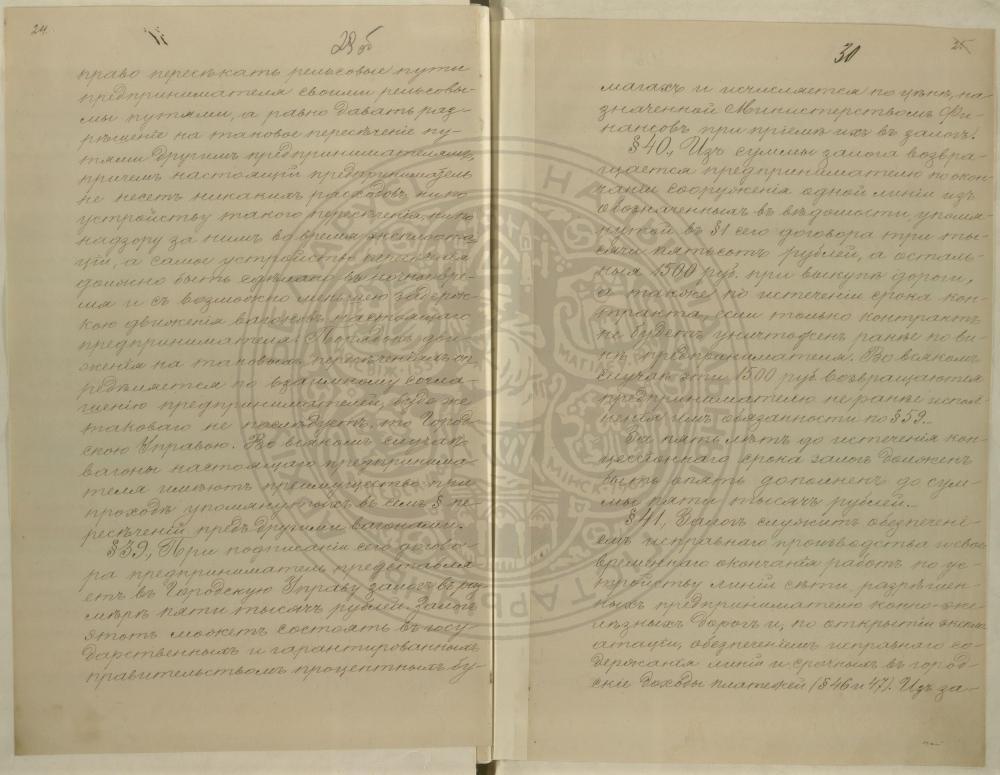 24
29 об
право пересѣкать рельсовые пути
предпринимателя своими рельсовы-
ми путями, а равно давать раз-
рѣшеніе на таковое пересѣченіе пу-
тями другимъ предпринимателямъ,
причемъ настоящій предприниматель
не несетъ никакихъ расходовъ ни по
устройству такого пересѣченія, ни по
надзору за нимъ во время эксплоата-
ціи, а самое устройство пересѣченія
должно быть сдѣлано въ ночное вре-
мя и съ возможно меньшею задерж-
кою движенія вагоновъ настоящаго
предпринимателя. Порядокъ дви-
женія на таковыхъ пересѣченіяхъ оп-
редѣляется по взаимному согла-
шенію предпринимателей, буде же
таковаго не послѣдуетъ, то Город-
скою Управою. Во всякомъ случаѣ
вагоны настоящаго предпринима-
теля имѣютъ преимущество при
проходѣ упомянутыхъ въ семъ § пе-
ресѣченій предъ другими вагонами.
§ 39, При подписаніи сего догово-
ра предприниматель представля-
етъ въ Городскую Управу залогъ въ раз-
мѣрѣ пяти тысячъ рублей. Залогъ
этотъ можетъ состоять въ госу-
дарственныхъ и гарантированныхъ
правительствомъ процентныхъ бу-
30
25
магахъ и исчисляется по цѣнѣ, на-
значенной Министерствомъ Фи-
нансовъ при пріемѣ ихъ въ залогъ.
§ 40, Изъ суммы залога возвра-
щается предпринимателю по окон-
чаніи сооруженія одной линіи изъ
обозначенныхъ въ вѣдомости, упомя-
нутой въ § 1 сего договора три ты-
сячи пятьсотъ рублей, а осталь-
ныя 1500 руб. при выкупѣ дороги,
а также по истеченіи срока кон-
тракта, если только контрактъ
не будетъ уничтоженъ ранѣе по ви-
нѣ предпринимателя. Во всякомъ
случаѣ эти 1500 руб. возвращаются
предпринимателю не ранѣе испол-
ненія имъ обязанности по § 59.
За пять лѣтъ до истеченія кон-
цессіоннаго срока залогъ долженъ
быть опять дополненъ до сум-
мы пяти тысячъ рублей.
§ 41, Залогъ служитъ обезпечені-
емъ исправнаго производства и свое-
временнаго окончанія работъ по ус-
тройству линій сѣти разрѣшен-
ныхъ предпринимателю конно-же-
лѣзныхъ дорогъ и, по открытіи эксплу-
атаціи, обезпеченіемъ исправнаго со-
держанія линій и срочныхъ въ город-
скіе доходы платежей (§ 46 и 47). Изъ за-